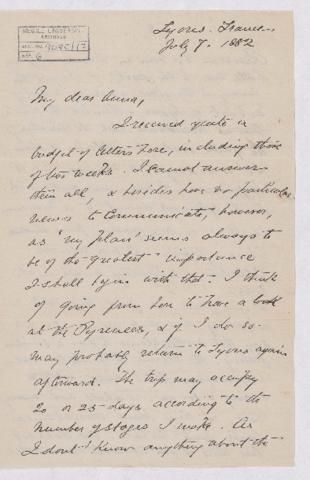 McGILL UNIVERSITY
ARCHIVES
ACC. NO.
REF. 6
Lyons. France
July 7. 1882
My dear Anna,
I received quite a
budget of letters here, including those
of two weeks. I cannot answer
them all, & besides have no particular
news to communicate, however,
as 'my plan' seems always to
be of the greatest importance
I shall begin with that. I think
of going from here to have a look
at the Pyrenees, & if I do so
may probably return to Lyons again
afterwards. The trip may occupy
20 or 25 days according to the
number of stages I make. As
I don't know anything about the